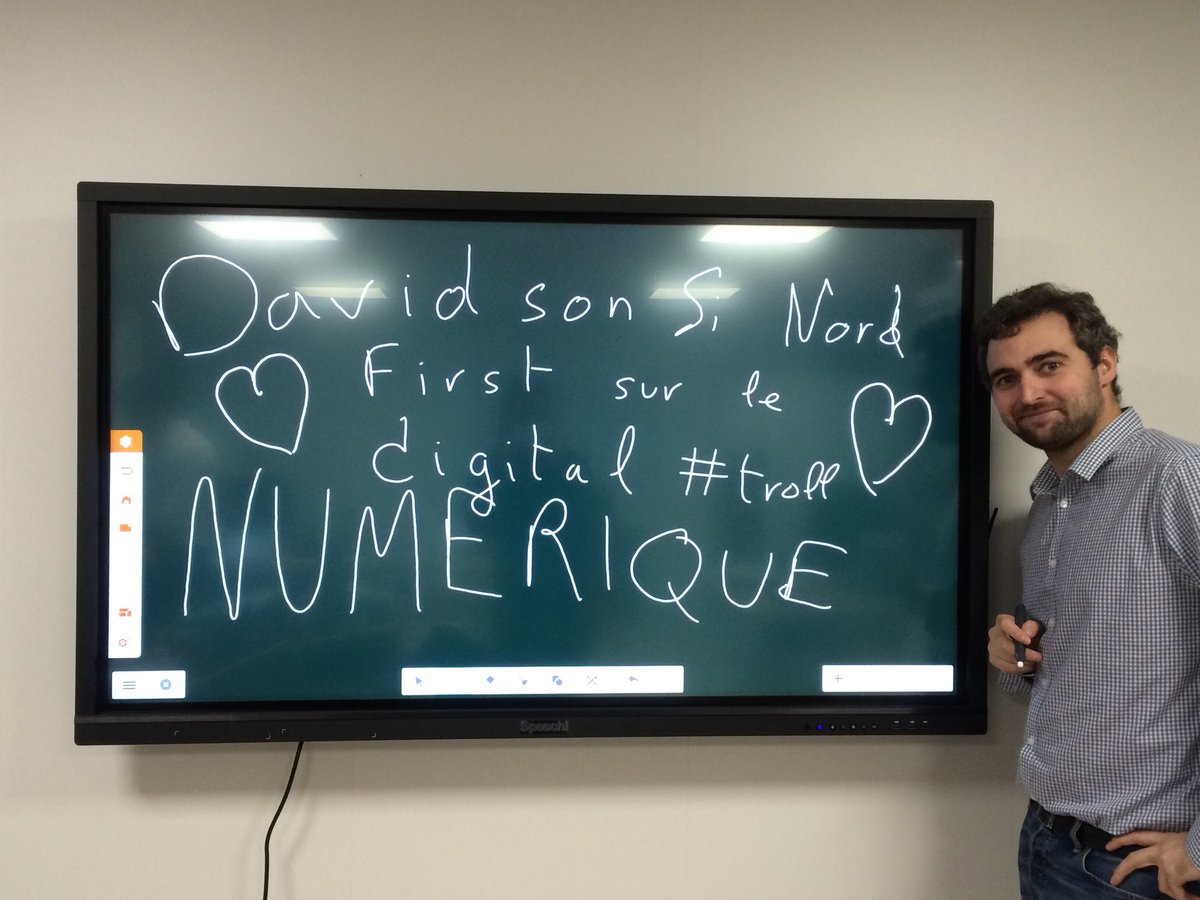 Davidson Si Nord
First sur le
digital #troll
NUMERIQUE
Speechi